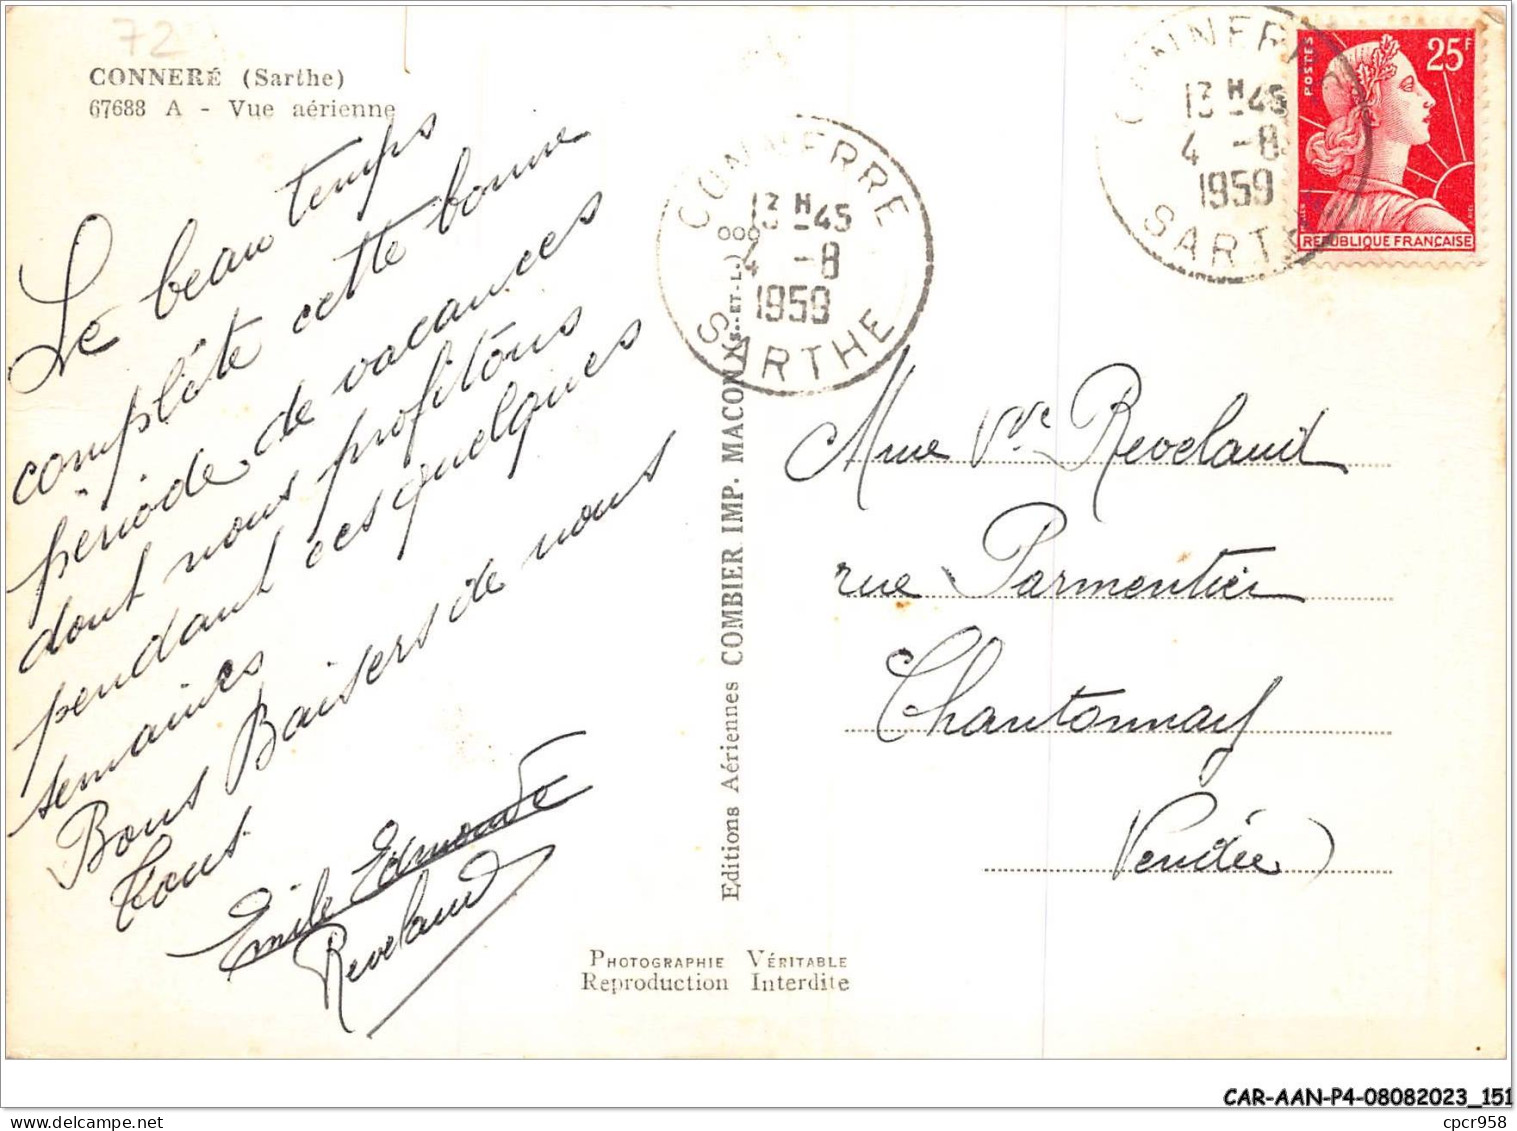 72
CONNERÉ (Sarthe)
67688 A - Vue aérienne
Le beau temps
complète cette bonne
période de vacances
dont nous profitons
pendant ces quelques
semaines
Bons Baisers de nous
tous.
Emile Edmonde
Reveland
Editions Aériennes COMBIER IMP. MACON (S.-ET-L.)
PHOTOGRAPHIE VÉRITABLE
Reproduction Interdite
CONNERRE
13 H 45
4 -8
1959
SARTHE
CONNERRE
13 H 45
4 -8
1959
SARTHE
POSTES
25F
REPUBLIQUE FRANÇAISE
Mme Vve Reveland
rue Parmentier
Chantonnay
Vendée
CAR-AAN-P4-08082023_151
cpcr958